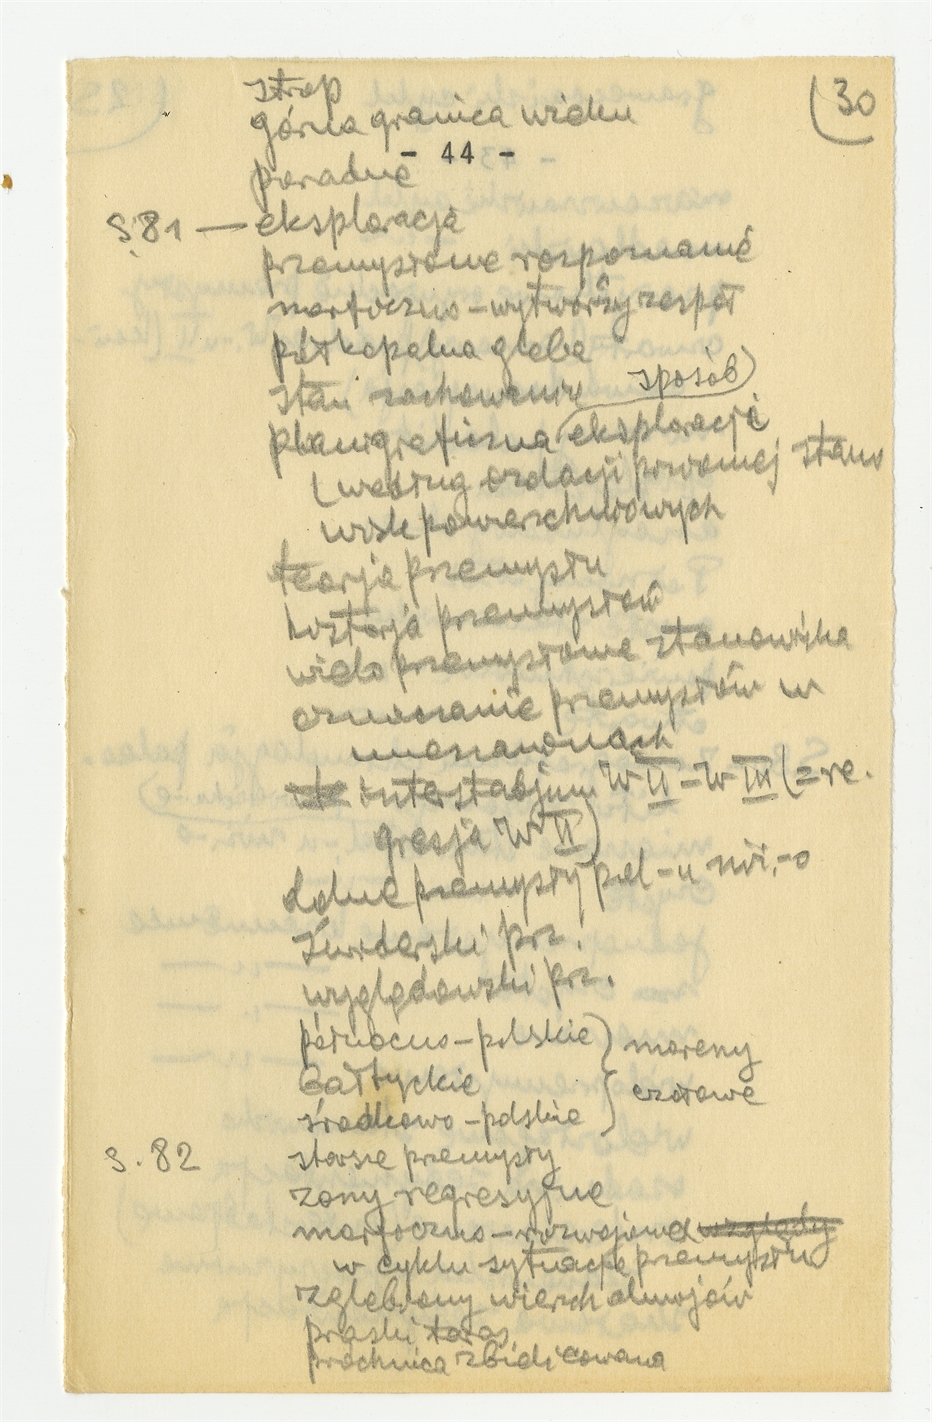 strop
(30
górna granica wieku
- 44 -
poradne
S.81 — eksploracja
przemysłowe rozpoznanie
martoczno-wytwórczy zespół
półkopalna gleba
stan zachowania sposób
planigraficzna eksploracja
(według ordacji pozornej stanowisk powierzchniowych
teorja przemysłu
historja przemysłów
wielo przemysłowe stanowiska
oznaczanie przemysłów w
mieszaninach
interstadjum W II - W III (= re.
gresja W II)
dolne przemysły pal-u niż.-o
świderski prz.
wyglądowski prz.
północno-polskie) moreny
Bałtyckie
środkowo-polskie } czołowe
S. 82 starsze przemysły
zony regresyjne
martoczno-rozwojowe względy
w cyklu sytuacje przemysłu
zglebiony wierzch aluwjów
praski taras
próchnica zbielicowana